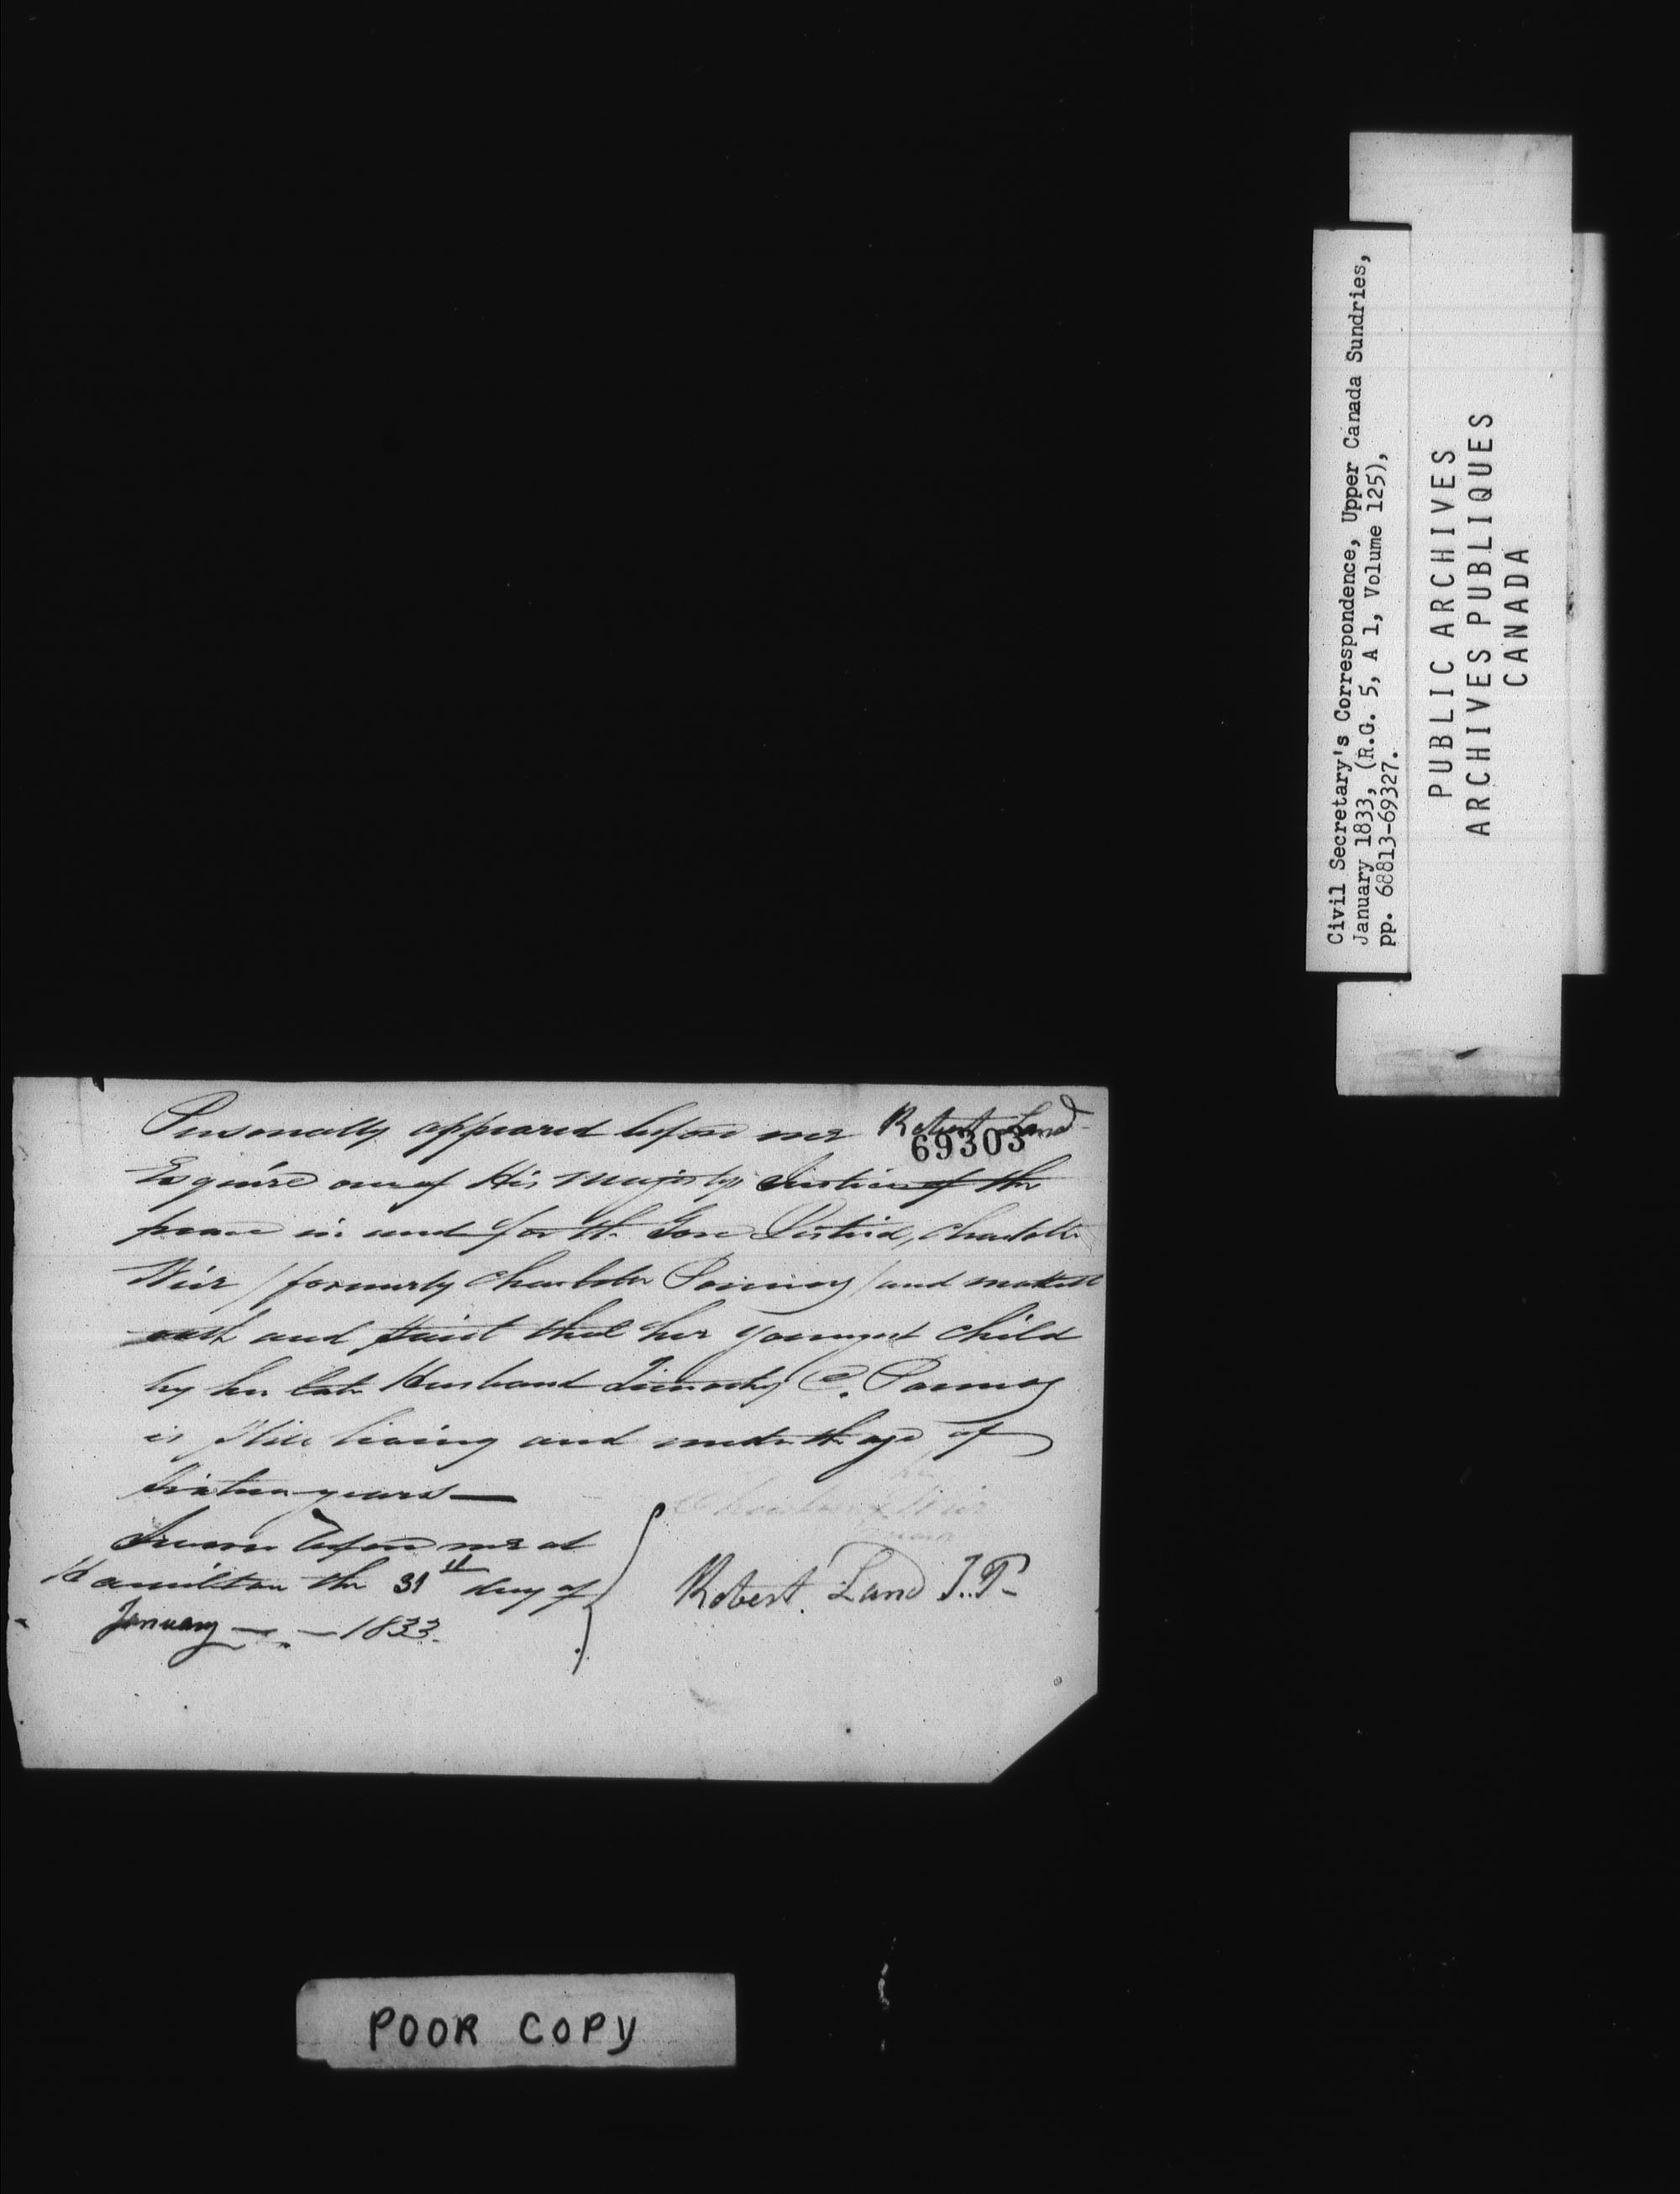 Personally appeared before me Robert Land
69303
Esquire one of His Majestys Justices of the
peace in and for the Gore District, Charlotte
Weir / formerly Charlotte / and maketh
oath and saith that her youngest child
by her late Husband Timothy C.
is still living and under the age of
Sixteen years —
her
Charlotte X Weir
mark
Sworn before me at
Hamilton the 31st day of
January — — 1833.
Robert Land J.P.
Civil Secretary's Correspondence, Upper Canada Sundries,
January 1833, (R.G. 5, A 1, Volume 125),
pp. 68813-69327.
PUBLIC ARCHIVES
ARCHIVES PUBLIQUES
CANADA
POOR COPY